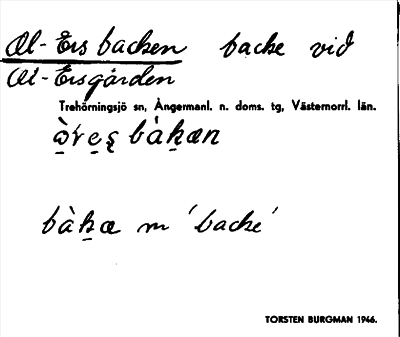 Ol-Ers backen backe vid
Ol-Ersgården
Trehörningsjö sn, Ångermanl. n. doms. tg, Västernorrl. län.
bàkæn
bàkæ m 'backe'
TORSTEN BURGMAN 1946.